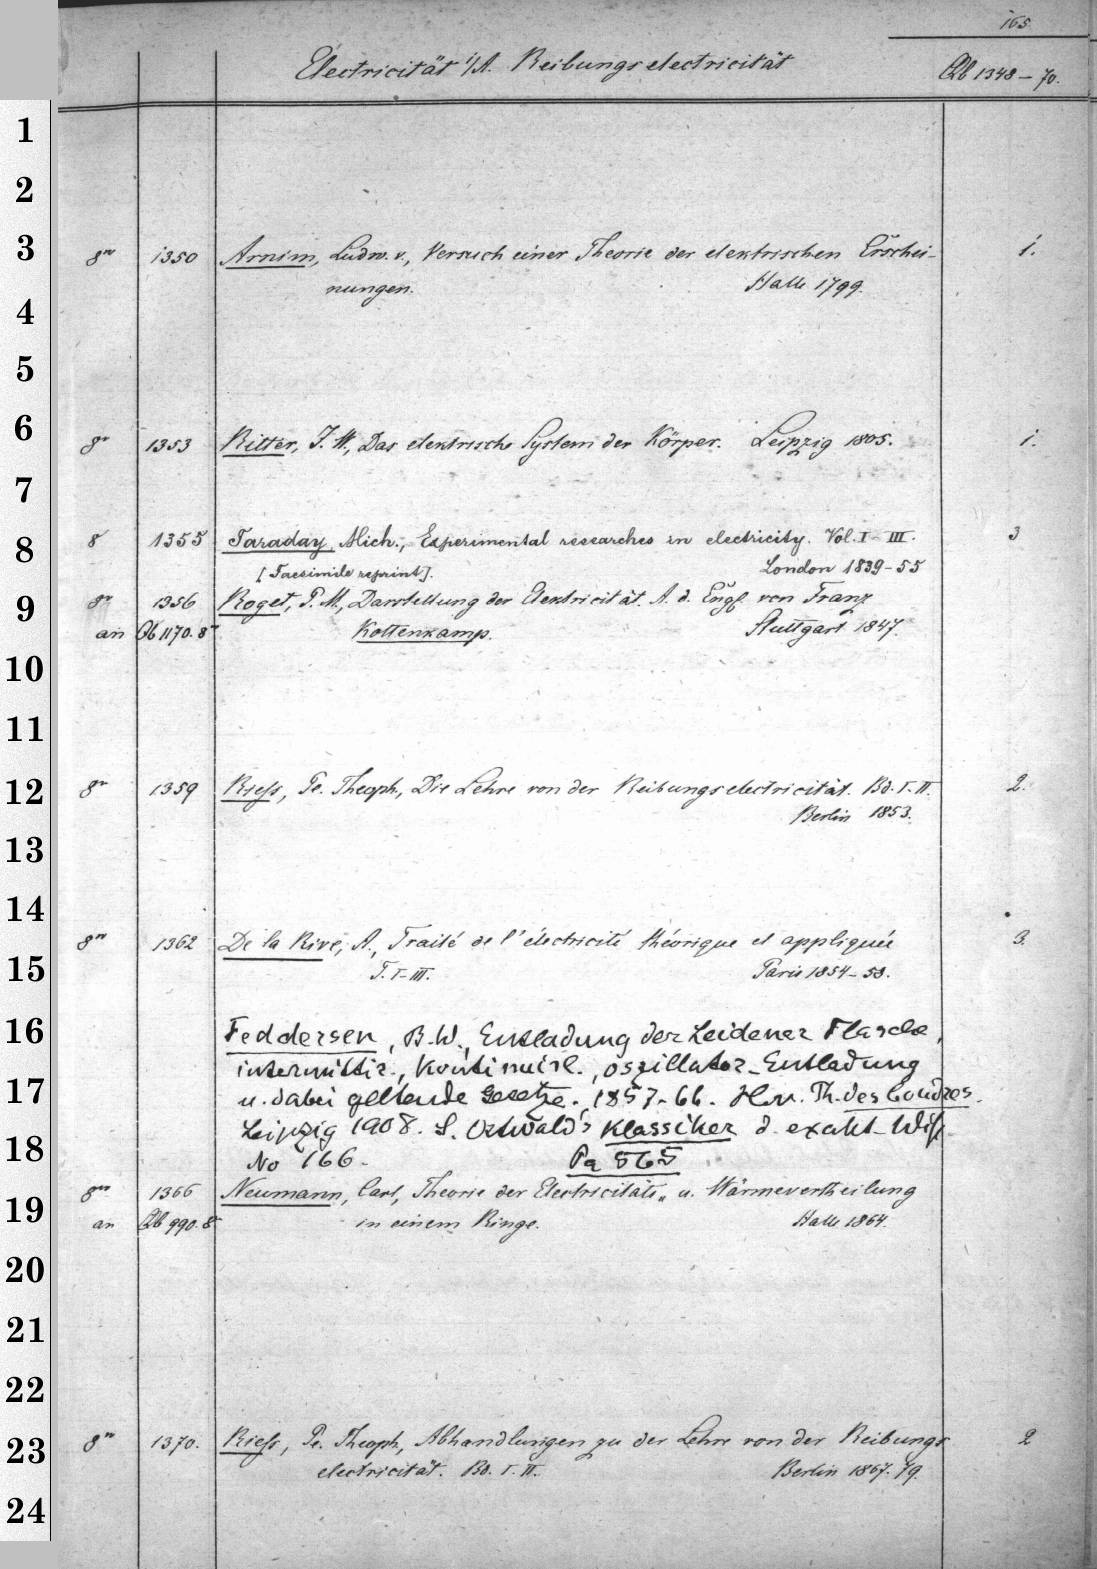 165.
Electricität 1/A. Reibungselectricität Qb 1348-70.
1
2
3 8vo 1350 Arnim, Ludw. v., Versuch einer Theorie der elektrischen Erschei- 1.
nungen. Halle 1799.
4
5
6 8vo 1353 Ritter, J. W., Das elektrische System der Körper. Leipzig 1805. 1.
7
8 8 1355 Faraday, Mich., Experimental researches in electricity. Vol. I-III. 3
[Facsimile reprint]. London 1839-55
9 8vo 1356 Roget, P. M., Darstellung der Elektricität. A. d. Engl. von Franz
an Qb 1170. 8o Kottenkamp. Stuttgart 1847.
10
11
12 8vo 1359 Riess, Pe. Theoph., Die Lehre von der Reibungselectricität. Bd. I-II. 2.
Berlin 1853.
13
14
8vo 1362 De la Rive, A., Traité de l'électricité théorique et appliquée 3.
15 T. I-III. Paris 1854-58.
16 Feddersen, B. W., Entladung der Leidener Flasche,
intermittir., kontinuirl., oszillator. Entladung
17 u. dabei geltende Gesetze. 1857-66. Hsv. Th. des Coudres.
Leipzig 1908. S. Ostwald's Klassiker d. exakt. Wiss.
18 No 166. Pa 565
8vo 1366 Neumann, Carl, Theorie der Electricitäts- u. Wärmevertheilung
19 an Qb 990. 8o in einem Ringe. Halle 1864.
20
21
22
23 8vo 1370. Riess, Pe. Theoph., Abhandlungen zu der Lehre von der Reibungs 2
electricität. Bd. I. II. Berlin 1867. 79.
24